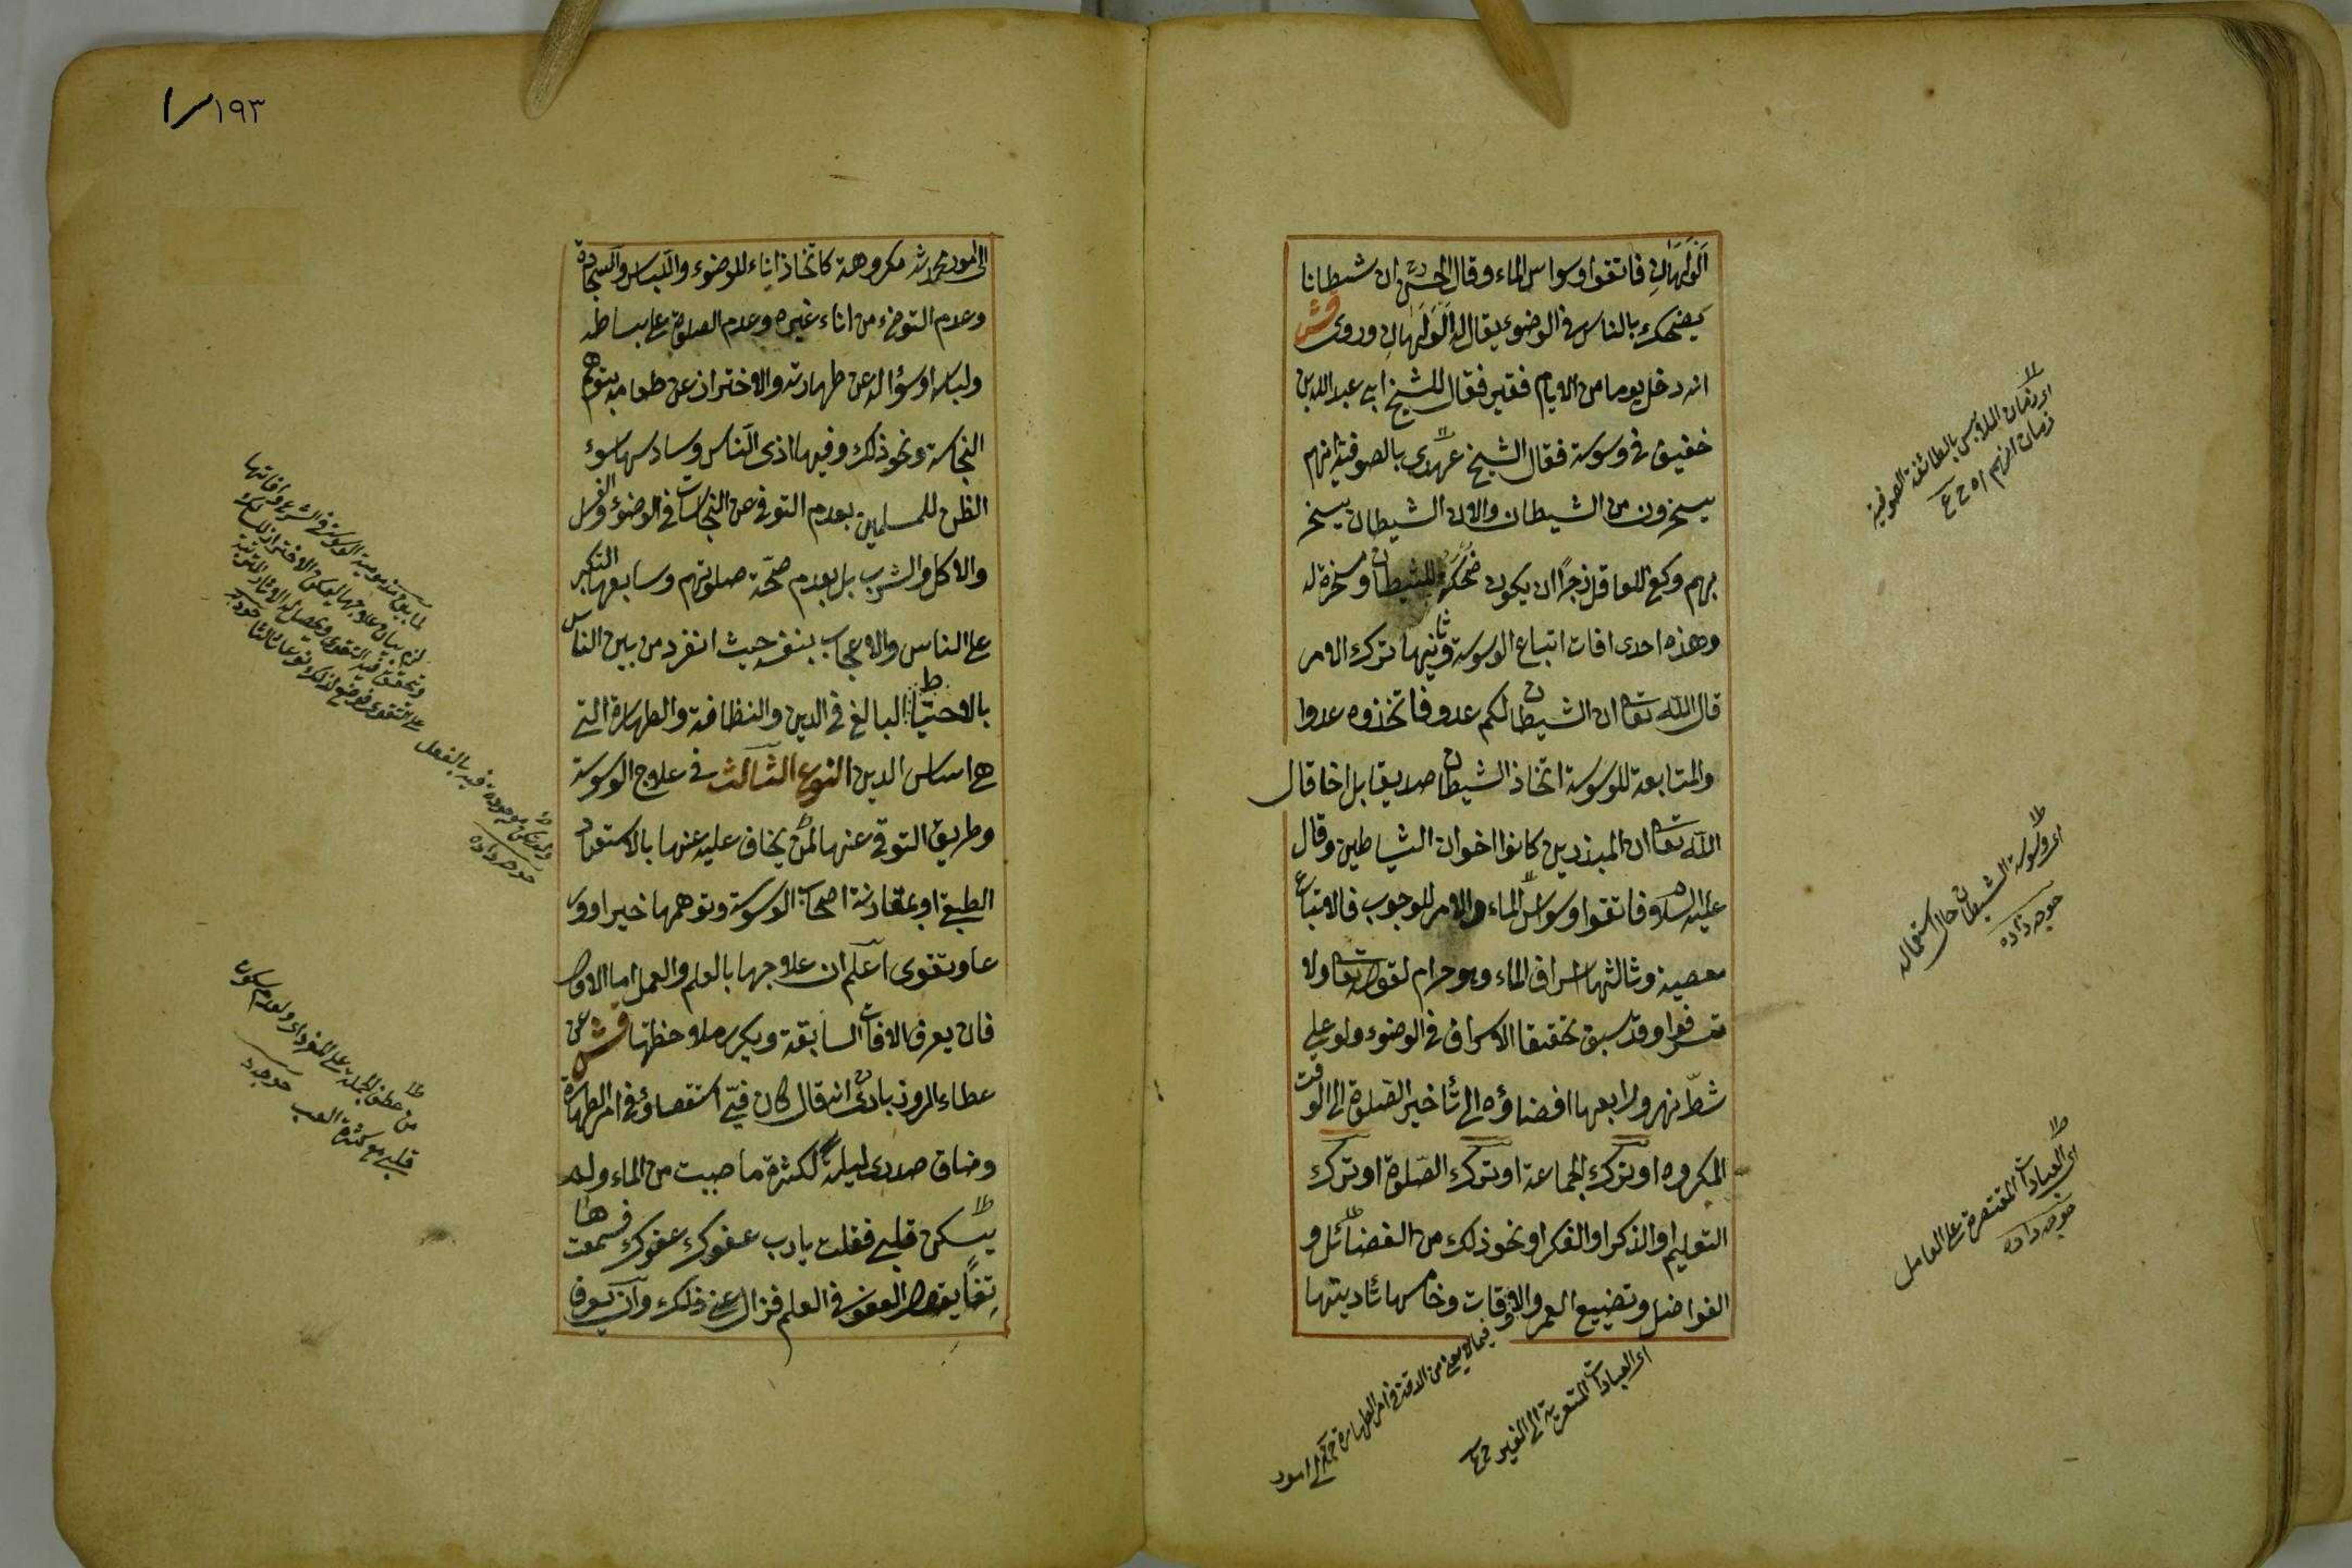 اَلْوَلَهَانِ فاتقوا وسواس الماء وقال الحسن ان شيطانا
يضحك بالناس في الوضوء يقال له اَلْوَلَهَانِ وروى قش
انه دخل يوما من الايام فقير فقال للشيخ ابي عبد الله بن
خفيق في وسوسة فقال الشيخ عهدى بالصوفية انهم
يسخرون من الشيطان والان الشيطان يسخر
بهم وكفى للعاقل زجرًا ان يكون ضحكة للشيطان ومسخرة له
وهذه احدى افات اتباع الوسوسة وثانيها ترك الامر
قال الله تعالى ان الشيطان لكم عدو فاتخذوه عدوا
والمتابعة للوسوسة اتخاذ الشيطان صديقا بل اخا قال
الله تعالى ان المبذرين كانوا اخوان الشياطين وقال
عليه السلام فاتقوا وسواس الماء والامر للوجوب فالاتباع
معصية وثالثها اسراف الماء وهو حرام لقوله تعالى ولا
تسرفوا وقد سبق تحقيق الاسراف في الوضوء ولو على
شطّ نهر ورابعها افضاؤه الى تأخير الصّلوة الى الوقت
المكروه او ترك الجماعة او ترك الصّلوة او ترك
التعليم او الذكر او الفكر او نحو ذلك من الفضائل و
الفواضل وتضييع العمر والاوقات وخامسها تأديتها
اى زمان الملابس بالطائفة الصوفية
زمان انهم اه ح ع
اى وسوسة الشيطان حال استعماله
خوجه زاده
اى العبادات المقتصرة على العامل
خوجه زاده
اى العبادات المتعدية الى الغير ح ع
فيما لا يعنى من الدقة في امر الطهارة
الى امور محدثة مكروهة كاتخاذ اناء للوضوء واللباس والسجادة
وعدم التوضى من اناء غيره وعدم الصلوة على بساطه
ولباسه او سؤاله عن طهارته والاحتراز عن طعامه بتوهم
النجاسة ونحو ذلك وفيها اذى الناس وسادسها سوء
الظن للمسلمين بعدم التوقى عن النجاسات في الوضوء والغسل
والاكل والشرب بل بعدم صحّة صلوتهم وسابعها التكبر
على الناس والاعجاب بنفسه حيث انفرد من بين الناس
بالاحتياط البالغ في الدين والنظافة والطهارة التى
هى اساس الدين النوع الثالث في علاج الوسوسة
وطريق التوقى عنها لمن يخاف عليه عنها بالاستعداد
الطبيعى او بمقارنة اصحاب الوسوسة وتوهمها خيرا وور
عا وتقوى اعلم ان علاجها بالعلم والعمل اما الاول
فان يعرف الافات السابقة ويكرر ملاحظتها قش عن
عطاء الروذبادى انه قال كان فيّ استقصاؤ في امر الطهارة
وضاق صدرى ليلة لكثرة ما صببت من الماء ولم
يسكن قلبى فقلت يا رب عفوك عفوك فسمعت ها
تفًا يقول العفو في العلم فزال عنى ذلك وان يعرف
١٩٣
من عطف الجملة على المفرد اى ولعدم سكون
قلبى مع كثرة الصب خوجه زاده